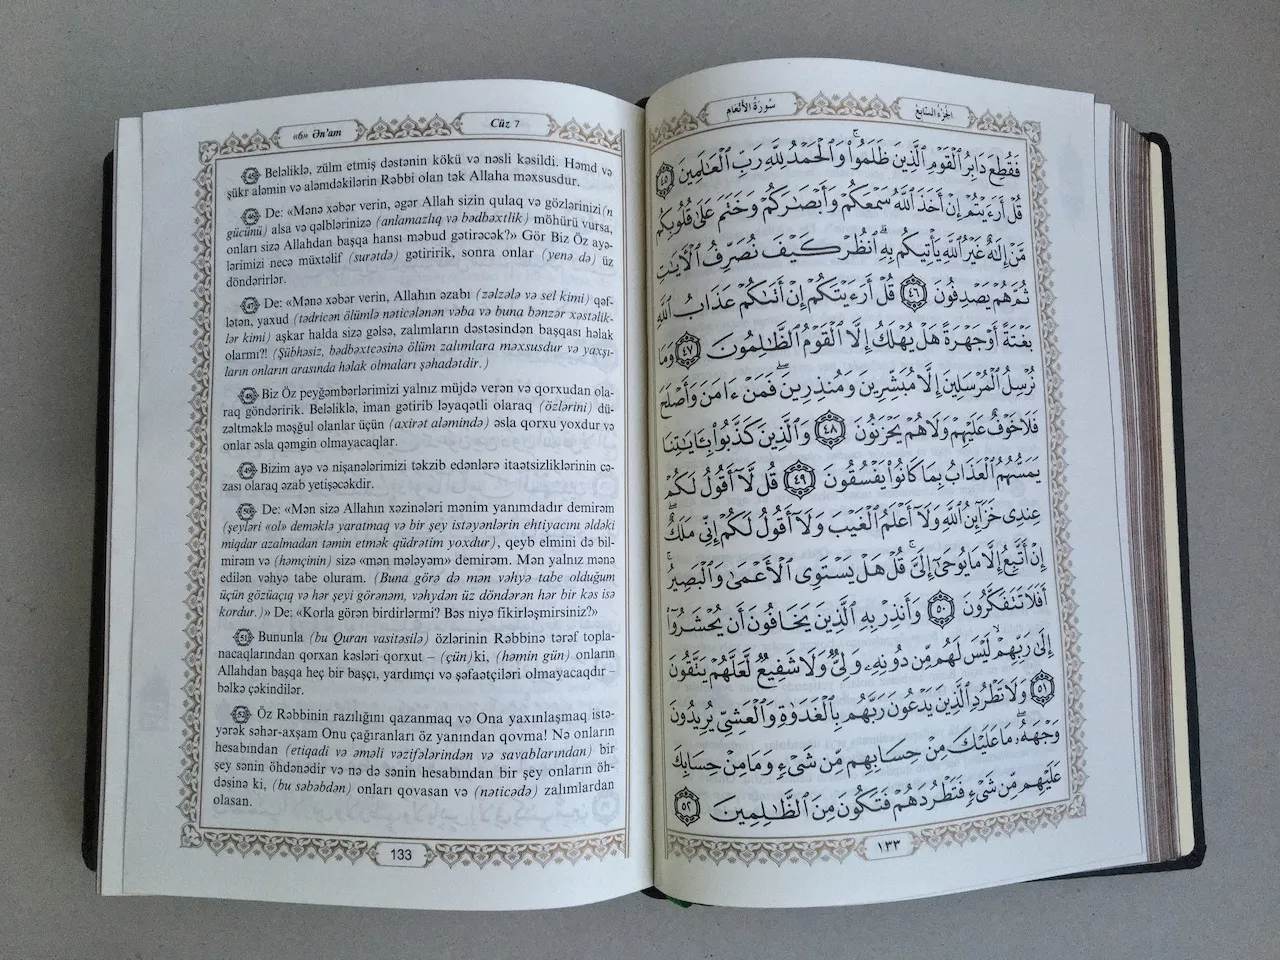 «6» Ən'am
Cüz 7
45 Beləliklə, zülm etmiş dəstənin kökü və nəsli kəsildi. Həmd və
şükr aləmin və aləmdəkilərin Rəbbi olan tək Allaha məxsusdur.
46 De: «Mənə xəbər verin, əgər Allah sizin qulaq və gözlərinizi(n
gücünü) alsa və qəlblərinizə (anlamazlıq və bədbəxtlik) möhürü vursa,
onları sizə Allahdan başqa hansı məbud gətirəcək?» Gör Biz Öz ayə-
lərimizi necə müxtəlif (surətdə) gətiririk, sonra onlar (yenə də) üz
döndərirlər.
47 De: «Mənə xəbər verin, Allahın əzabı (zəlzələ və sel kimi) qəf-
lətən, yaxud (tədricən ölümlə nəticələnən vəba və buna bənzər xəstəlik-
lər kimi) aşkar halda sizə gəlsə, zalımların dəstəsindən başqası həlak
olarmı?! (Şübhəsiz, bədbəxtcəsinə ölüm zalımlara məxsusdur və yaxşı-
ların onların arasında həlak olmaları şəhadətdir.)
48 Biz Öz peyğəmbərlərimizi yalnız müjdə verən və qorxudan ola-
raq göndəririk. Beləliklə, iman gətirib ləyaqətli olaraq (özlərini) dü-
zəltməklə məşğul olanlar üçün (axirət aləmində) əsla qorxu yoxdur və
onlar əsla qəmgin olmayacaqlar.
49 Bizim ayə və nişanələrimizi təkzib edənlərə itaətsizliklərinin cə-
zası olaraq əzab yetişəcəkdir.
50 De: «Mən sizə Allahın xəzinələri mənim yanımdadır demirəm
(şeyləri «ol» deməklə yaratmaq və bir şey istəyənlərin ehtiyacını əldəki
miqdar azalmadan təmin etmək qüdrətim yoxdur), qeyb elmini də bil-
mirəm və (həmçinin) sizə «mən mələyəm» demirəm. Mən yalnız mənə
edilən vəhyə tabe oluram. (Buna görə də mən vəhyə tabe olduğum
üçün gözüaçıq və hər şeyi görənəm, vəhydən üz döndərən hər bir kəs isə
kordur.)» De: «Korla görən birdirlərmi? Bəs niyə fikirləşmirsiniz?»
51 Bununla (bu Quran vasitəsilə) özlərinin Rəbbinə tərəf topla-
nacaqlarından qorxan kəsləri qorxut – (çün)ki, (həmin gün) onların
Allahdan başqa heç bir başçı, yardımçı və şəfaətçiləri olmayacaqdır –
bəlkə çəkindilər.
52 Öz Rəbbinin razılığını qazanmaq və Ona yaxınlaşmaq istə-
yərək səhər-axşam Onu çağıranları öz yanından qovma! Nə onların
hesabından (etiqadi və əməli vəzifələrindən və savablarından) bir
şey sənin öhdənədir və nə də sənin hesabından bir şey onların öh-
dəsinə ki, (bu səbəbdən) onları qovasan və (nəticədə) zalımlardan
olasan.
133
الجزء السابع
سورة الأنعام
فَقُطِعَ دَابِرُ ٱلْقَوْمِ ٱلَّذِينَ ظَلَمُوا۟ ۚ وَٱلْحَمْدُ لِلَّهِ رَبِّ ٱلْعَـٰلَمِينَ ٤٥
قُلْ أَرَءَيْتُمْ إِنْ أَخَذَ ٱللَّهُ سَمْعَكُمْ وَأَبْصَـٰرَكُمْ وَخَتَمَ عَلَىٰ قُلُوبِكُم
مَّنْ إِلَـٰهٌ غَيْرُ ٱللَّهِ يَأْتِيكُم بِهِ ۗ ٱنظُرْ كَيْفَ نُصَرِّفُ ٱلْـَٔايَـٰتِ
ثُمَّ هُمْ يَصْدِفُونَ ٤٦ قُلْ أَرَءَيْتَكُمْ إِنْ أَتَىٰكُمْ عَذَابُ ٱللَّهِ
بَغْتَةً أَوْ جَهْرَةً هَلْ يُهْلَكُ إِلَّا ٱلْقَوْمُ ٱلظَّـٰلِمُونَ ٤٧ وَمَا
نُرْسِلُ ٱلْمُرْسَلِينَ إِلَّا مُبَشِّرِينَ وَمُنذِرِينَ ۖ فَمَنْ ءَامَنَ وَأَصْلَحَ
فَلَا خَوْفٌ عَلَيْهِمْ وَلَا هُمْ يَحْزَنُونَ ٤٨ وَٱلَّذِينَ كَذَّبُوا۟ بِـَٔايَـٰتِنَا
يَمَسُّهُمُ ٱلْعَذَابُ بِمَا كَانُوا۟ يَفْسُقُونَ ٤٩ قُل لَّآ أَقُولُ لَكُمْ
عِندِى خَزَآئِنُ ٱللَّهِ وَلَآ أَعْلَمُ ٱلْغَيْبَ وَلَآ أَقُولُ لَكُمْ إِنِّى مَلَكٌ ۖ
إِنْ أَتَّبِعُ إِلَّا مَا يُوحَىٰٓ إِلَىَّ ۚ قُلْ هَلْ يَسْتَوِى ٱلْأَعْمَىٰ وَٱلْبَصِيرُ ۚ
أَفَلَا تَتَفَكَّرُونَ ٥٠ وَأَنذِرْ بِهِ ٱلَّذِينَ يَخَافُونَ أَن يُحْشَرُوٓا۟
إِلَىٰ رَبِّهِمْ ۙ لَيْسَ لَهُم مِّن دُونِهِۦ وَلِىٌّ وَلَا شَفِيعٌ لَّعَلَّهُمْ يَتَّقُونَ
٥١ وَلَا تَطْرُدِ ٱلَّذِينَ يَدْعُونَ رَبَّهُم بِٱلْغَدَوٰةِ وَٱلْعَشِىِّ يُرِيدُونَ
وَجْهَهُۥ ۖ مَا عَلَيْكَ مِنْ حِسَابِهِم مِّن شَىْءٍ وَمَا مِنْ حِسَابِكَ
عَلَيْهِم مِّن شَىْءٍ فَتَطْرُدَهُمْ فَتَكُونَ مِنَ ٱلظَّـٰلِمِينَ ٥٢
١٣٣